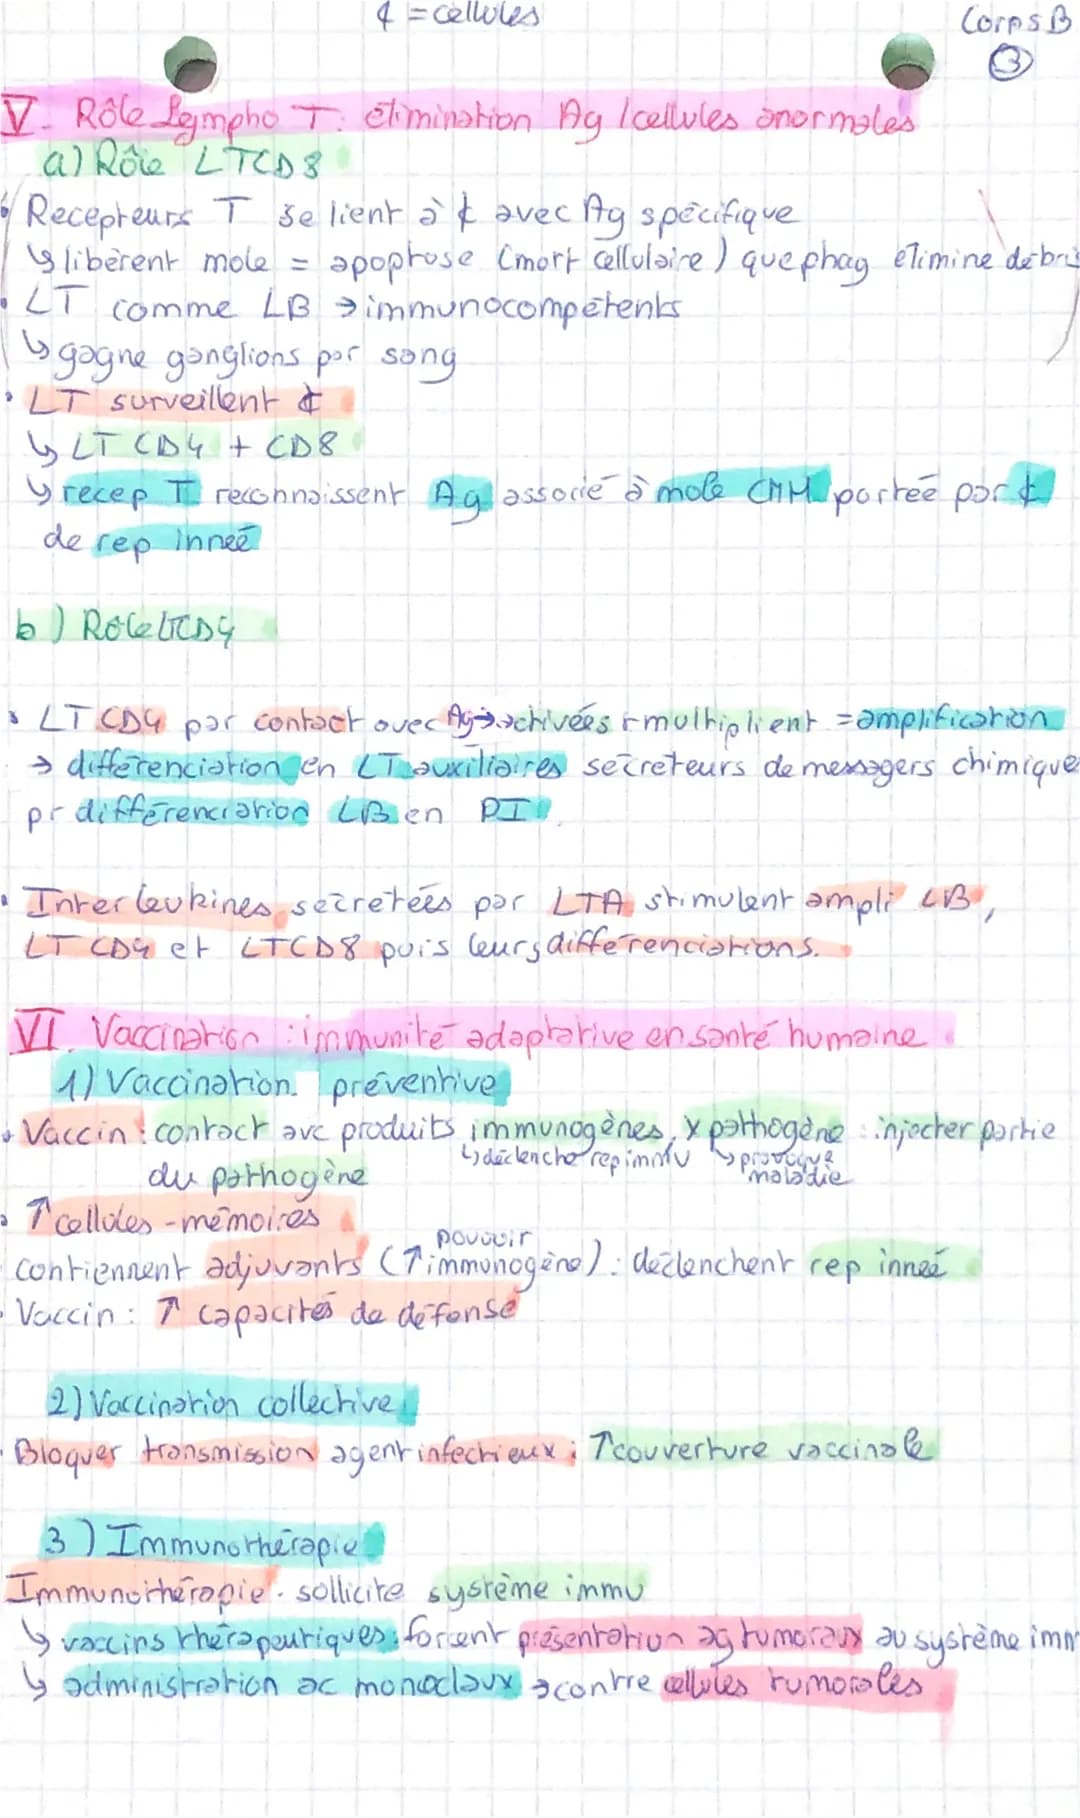 ¢ = cellules
Corps B
3
V. Rôle Lympho T: élimination Ag / cellules anormales
a) Rôle LTCD8
Recepteurs T se lient à ¢ avec Ag spécifique
↳ libèrent mole = apoptose (mort cellulaire) que phag élimine débris
• LT comme LB → immunocompétents
↳ gagne ganglions par sang
• LT surveillent ¢
↳ LT CD4 + CD8
↳ recep T reconnaissent Ag associé à mole CMH portée par ¢
de rep innée
b) Role LTCD4
• LT CD4 par contact avec Ag → activées + multiplient = amplification
→ différenciation en LT auxiliaires secréteurs de messagers chimique
pr différenciation LB en PI.
• Interleukines secretées par LTA stimulent ampli LB,
LT CD4 et LTCD8 puis leurs différenciations.
VI. Vaccination : immunité adaptative en santé humaine
1) Vaccination préventive
• Vaccin : contact avc produits immunogènes, x pathogène : injecter partie
↳ déclenche rep immu ↳ provoque maladie
du pathogène
• ↑ cellules-mémoires
pouvoir
contiennent adjuvants (↑ immunogène) : déclenchent rep innée
• Vaccin : ↑ capacités de défense
2) Vaccination collective
• Bloquer transmission agent infectieux ; ↑ couverture vaccinale
3) Immunothérapie
Immunothérapie : sollicite système immu
↳ vaccins thérapeutiques : forcent présentation ag tumoraux au système imm
↳ administration ac monoclaux → contre cellules tumorales